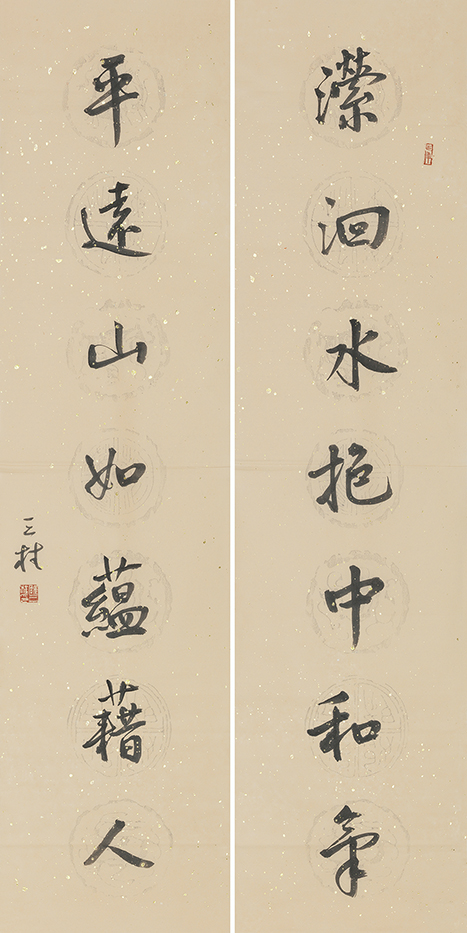 瀠洄水抱中和氣
平遠山如蘊藉人
三村